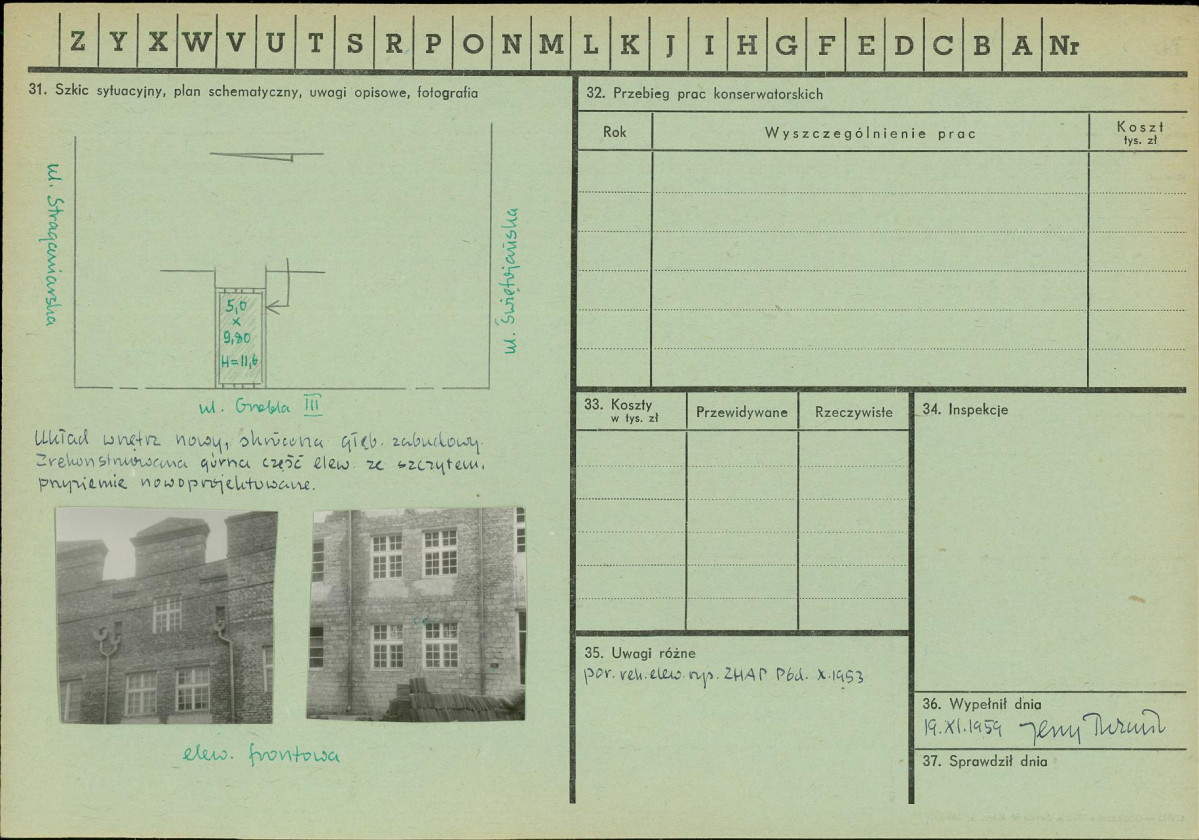 Z Y X W V U T S R P O N M L K J I H G F E D C B A Nr
31. Szkic sytuacyjny, plan schematyczny, uwagi opisowe, fotografia
ul. Straganiarska
ul. Świętojańska
5,0
x
9,80
H=11,6
ul. Grobla III
Układ wnętrz nowy, skrócona głęb. zabudowy.
Zrekonstruowana górna część elew. ze szczytem,
przyziemie nowoprojektowane.
elew. frontowa
32. Przebieg prac konserwatorskich
Rok
Wyszczególnienie prac
Koszt
tys. zł
33. Koszty
w tys. zł
Przewidywane
Rzeczywiste
34. Inspekcje
35. Uwagi różne
por. rek. elew. rys. ZHAP Pbd. X.1953
36. Wypełnił dnia
19.XI.1959 Jerzy
37. Sprawdził dnia